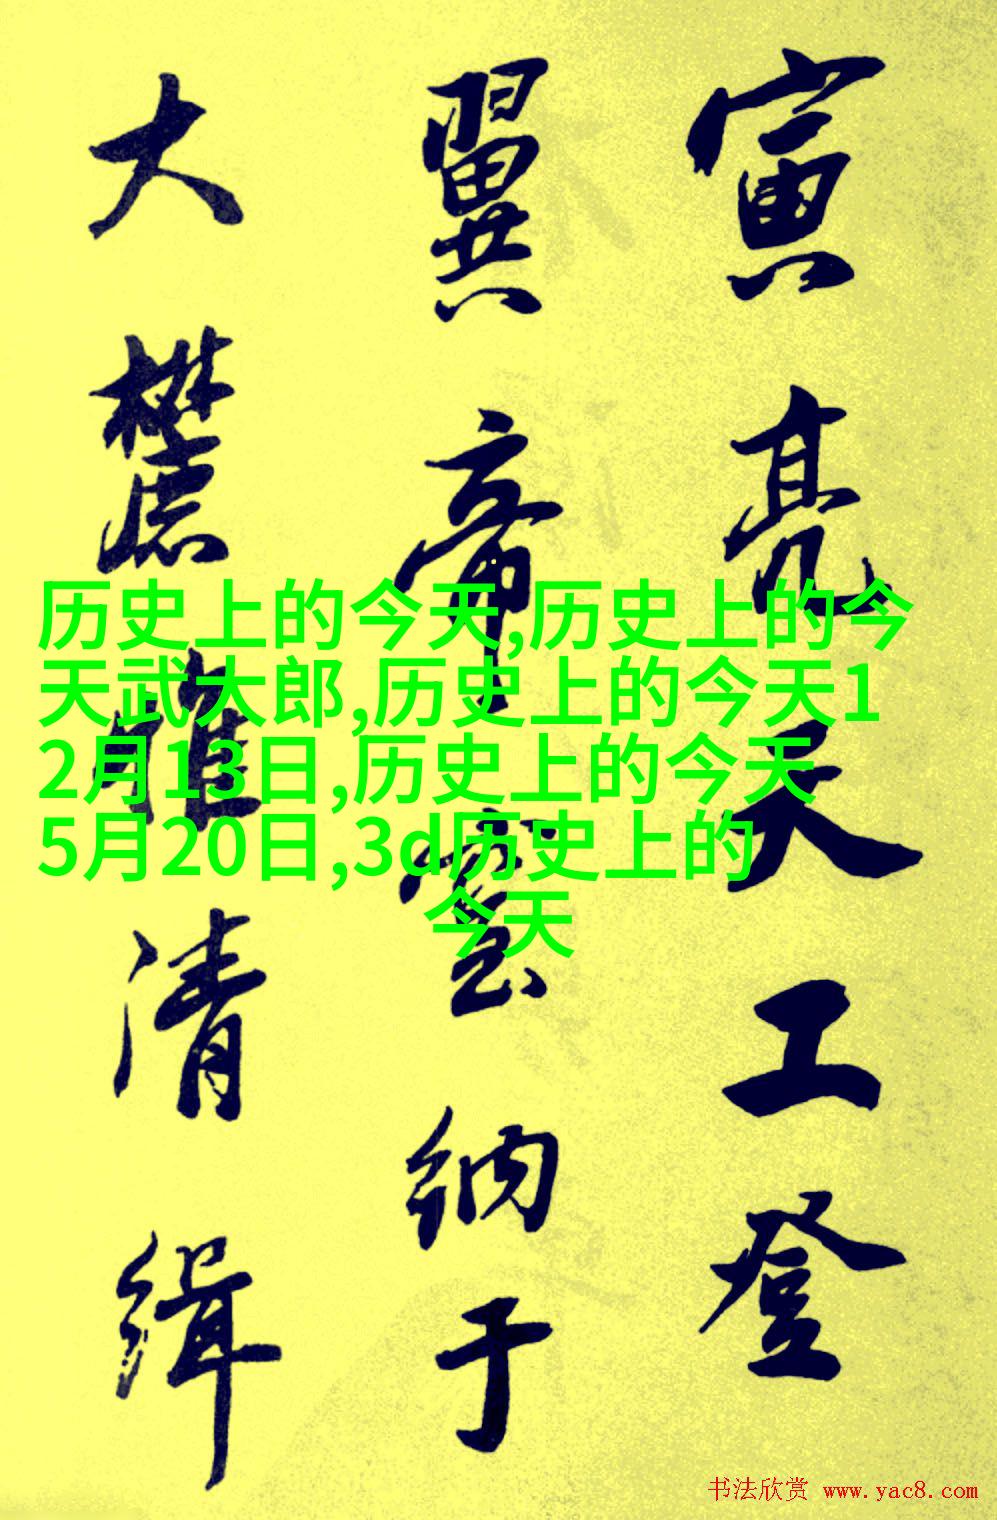 寅亮天工登
翼帝室纳于
大麓惟清缉
历史上的今天,历史上的今
天武大郎,历史上的今天1
2月13日,历史上的今天
5月20日,3d历史上的
今天
书法欣赏 www.yac8.com